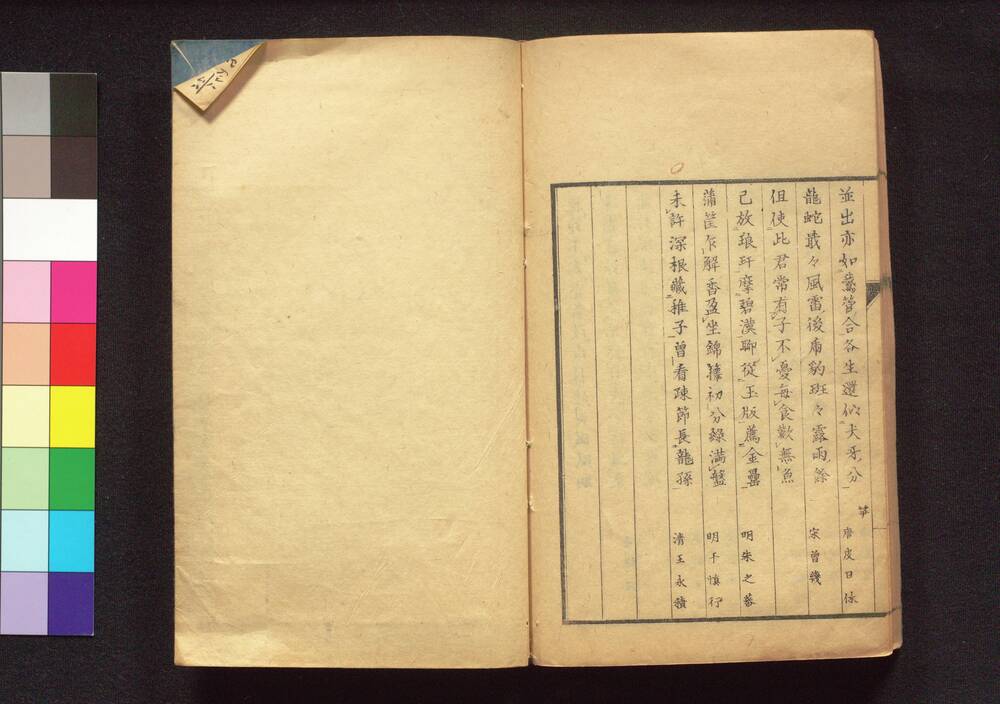 並出亦如鵞管合各生還似犬牙分 唐皮日休
笋
龍蛇戢々風雷後虎豹斑々露雨餘
但使此君常有子不憂每食歎無魚 宋曾幾
已放琅玕摩碧漢聊從玉版薦金罍 明朱之蕃
蒲茁乍解香盈坐錦籜初分綠滿盤 明于慎行
未許深根藏稚子曾看疎節長龍孫 清王永積